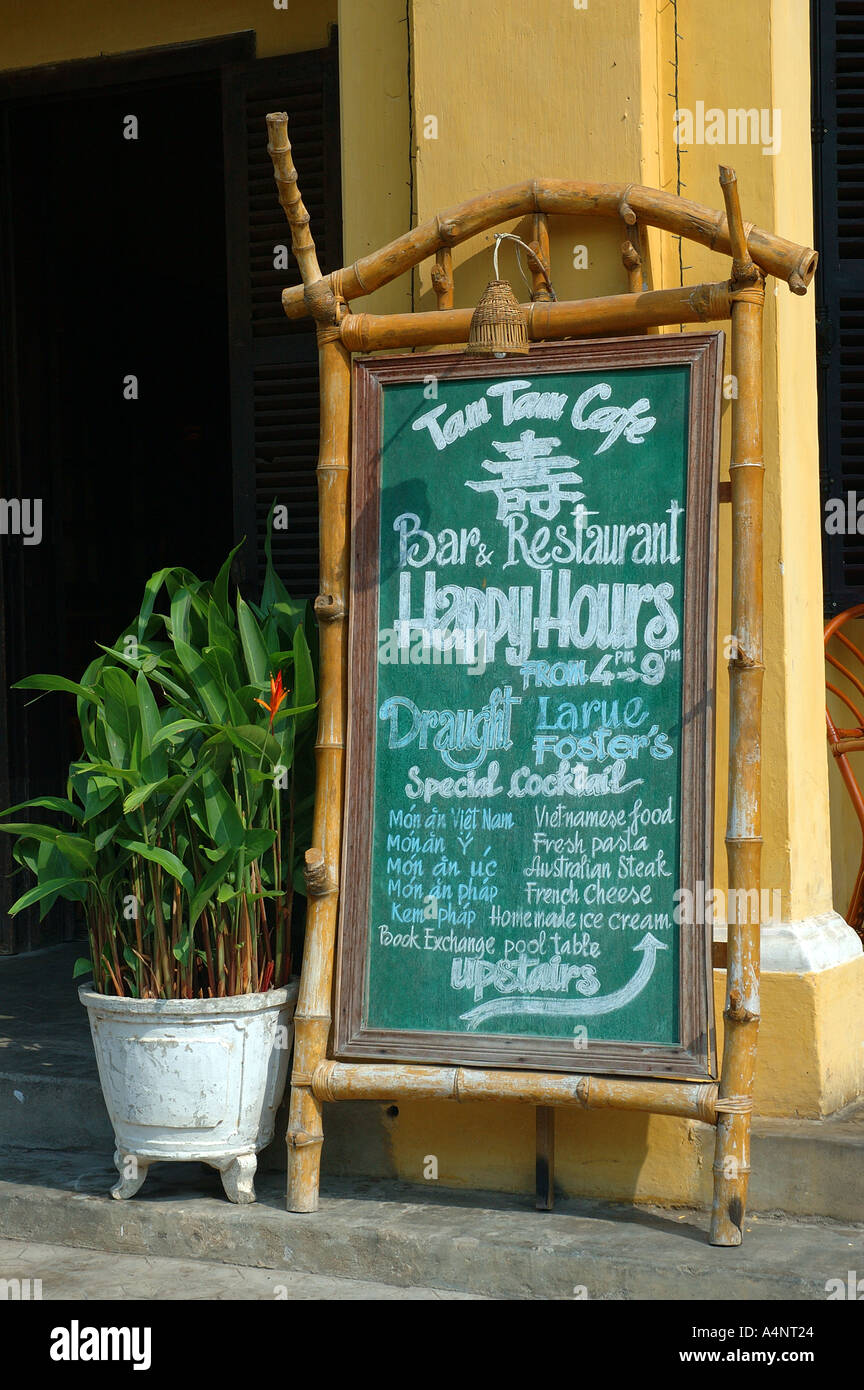 Tam Tam Cafe
壽
Bar & Restaurant
Happy Hours
FROM 4pm → 9pm
Draught Larue
Foster's
Special Cocktail
Món ăn Việt Nam Vietnamese food
Món ăn Ý Fresh pasta
Món ăn úc Australian Steak
Món ăn pháp French Cheese
Kem pháp Homemade ice cream
Book Exchange pool table
upstairs
alamy
Image ID: A4NT24
www.alamy.com